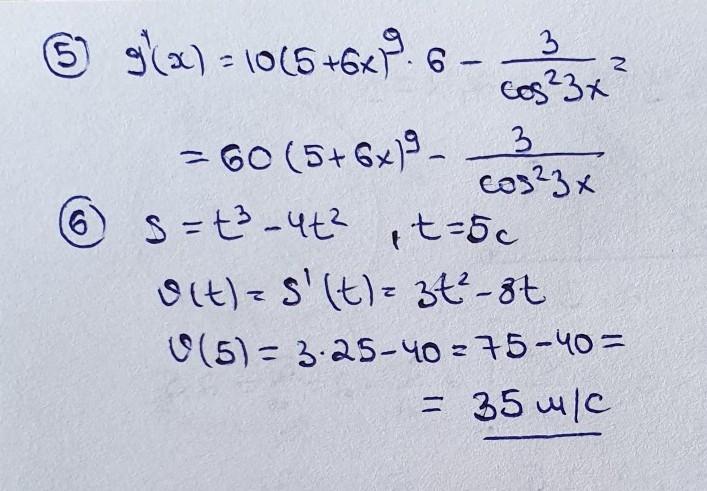 ⑤ g'(x) = 10(5+6x)⁹ · 6 − 3/cos²3x =
= 60(5+6x)⁹ − 3/cos²3x
⑥ s = t³ − 4t², t=5c
v(t) = s'(t) = 3t² − 8t
v(5) = 3·25−40 = 75−40 =
= 35 м/с